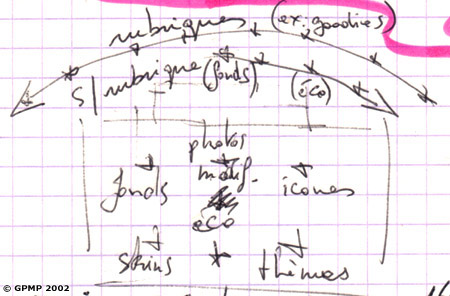 rubriques (ex. goodies)
s/rubrique (fonds) (éco)
photos
fonds motif. icones
éco
skins * thèmes
© GPMP 2002